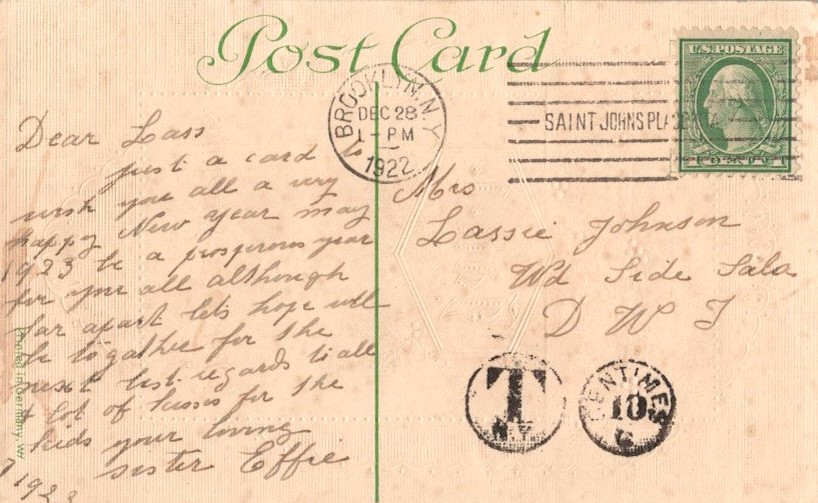 Post Card
BROOKLYN, N.Y.
DEC 28
1 - PM
1922
SAINT JOHNS PLA
U.S. POSTAGE
Dear Lass
just a card
wish you all a very
happy New Year may
1923 be a prosperous year
for you all although
far apart lets hope will
be together for the
next best regards to all
& lot of kisses for the
kids your loving
sister Effie
1923
Mrs
Lassie Johnson
Wd Side Saba
D W I
T
N.Y.
CENTIMES
10
Printed in Germany.